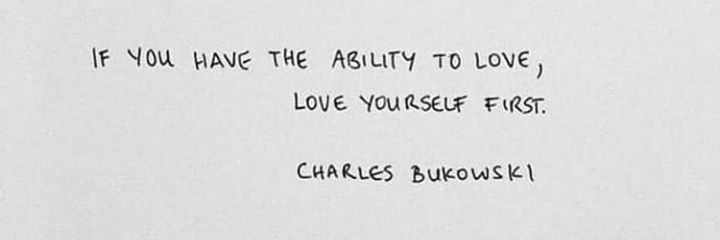 IF YOU HAVE THE ABILITY TO LOVE,
LOVE YOURSELF FIRST.
CHARLES BUKOWSKI